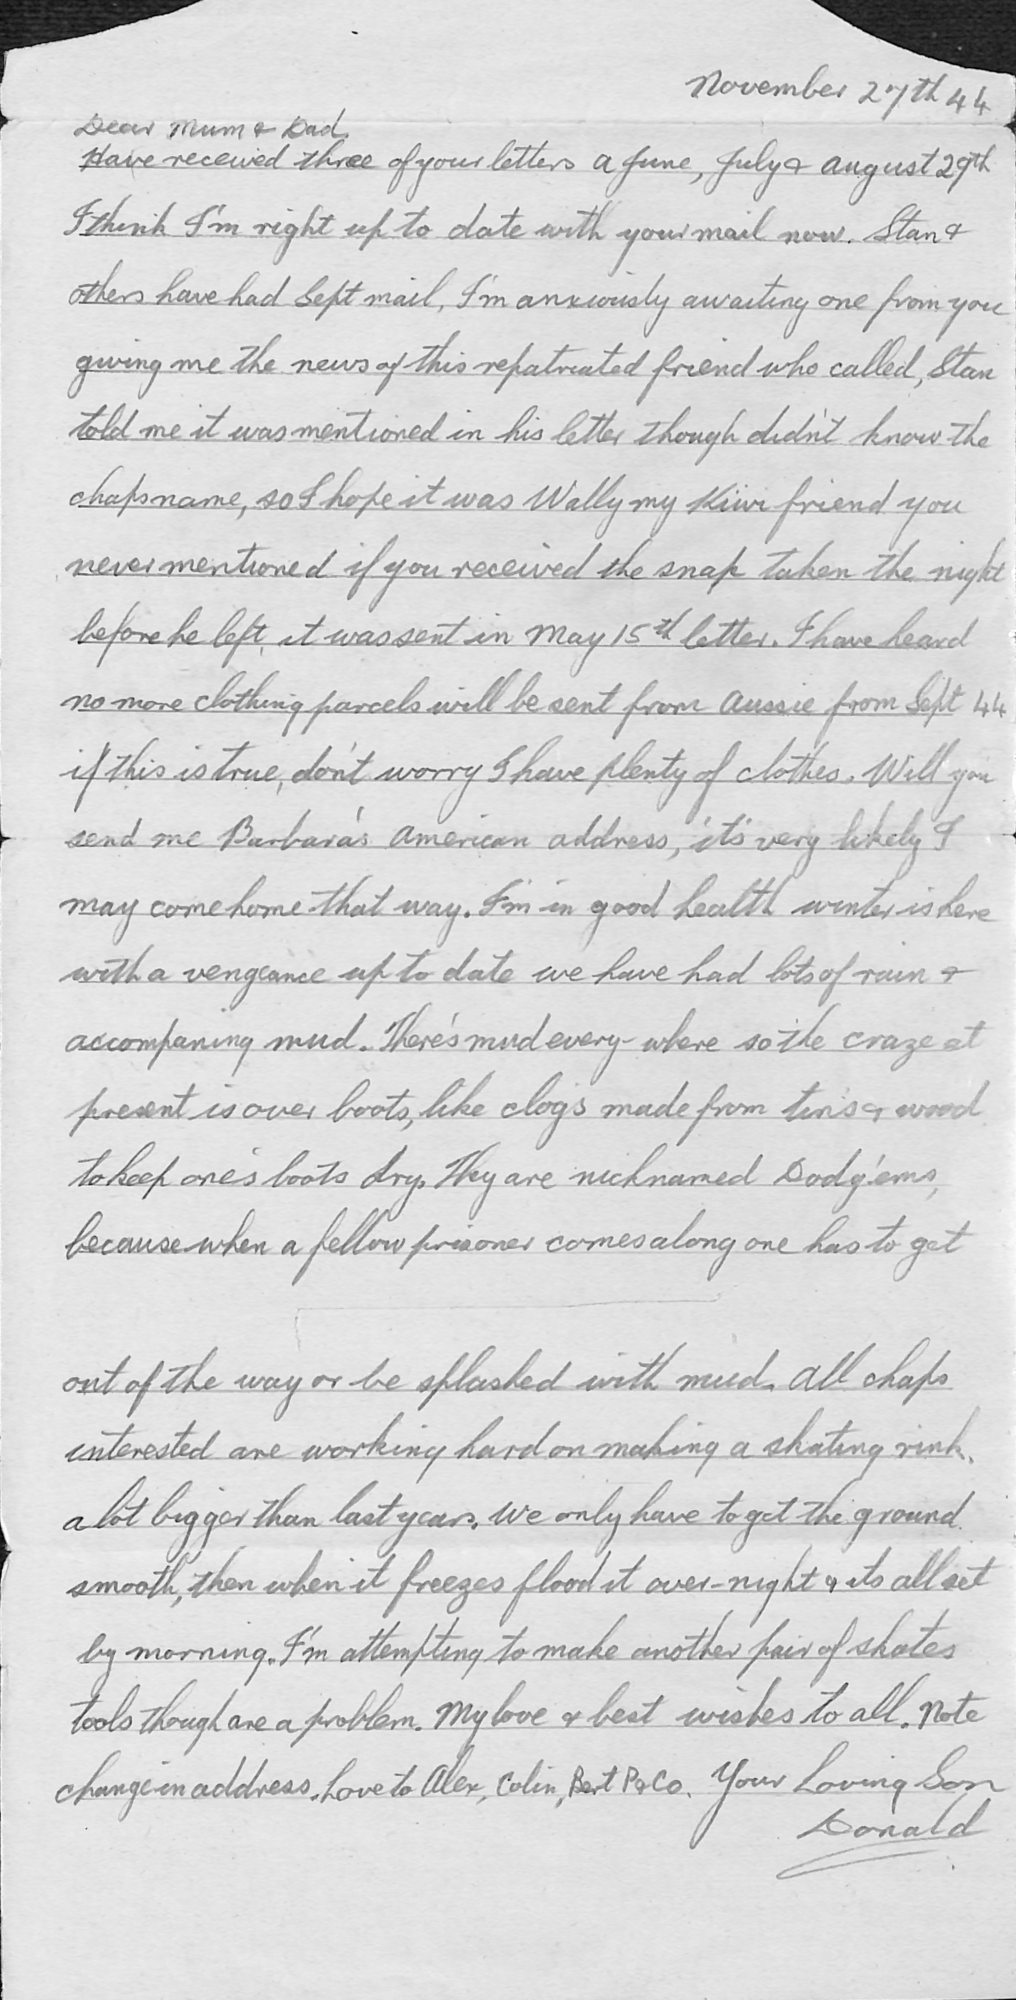 November 27th 44
Dear Mum & Dad.
Have received three of your letters a June, July & August 29th
I think I'm right up to date with your mail now. Stan &
others have had Sept mail, I'm anxiously awaiting one from you
giving me the news of this repatriated friend who called, Stan
told me it was mentioned in his letter though didn't know the
chaps name, so I hope it was Wally my Kiwi friend you
never mentioned if you received the snap taken the night
before he left, it was sent in May 15th letter. I have heard
no more clothing parcels will be sent from Aussie from Sept 44
if this is true, don't worry I have plenty of clothes. Will you
send me Barbara's American address, it's very likely I
may come home that way. I'm in good health winter is here
with a vengeance up to date we have had lots of rain &
accompaning mud. There's mud every-where so the craze at
present is over boots, like clogs made from tins & wood
to keep one's boots dry. They are nicknamed Dodg'ems,
because when a fellow prisoner comes along one has to get
out of the way or be splashed with mud. All chaps
interested are working hard on making a skating rink,
a lot bigger than last years. We only have to get the ground
smooth, then when it freezes flood it over-night & its all set
by morning. I'm attempting to make another pair of skates
tools though are a problem. My love & best wishes to all. Note
change in address. Love to Alex, Colin, Bert P & Co. Your Loving Son
Donald